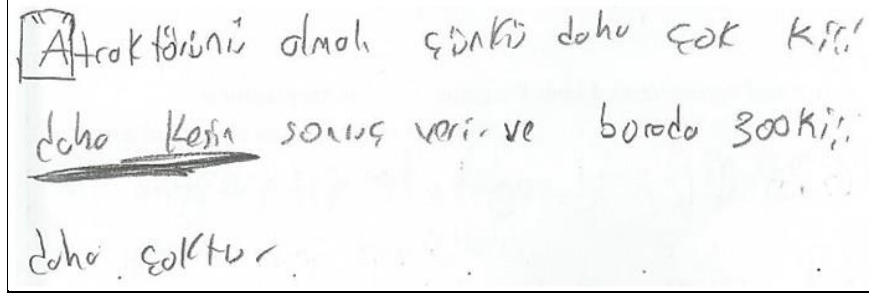 A traktörünü almalı çünkü daha çok kişi
daha kesin sonuç verir ve burada 300 kişi
daha çoktur.